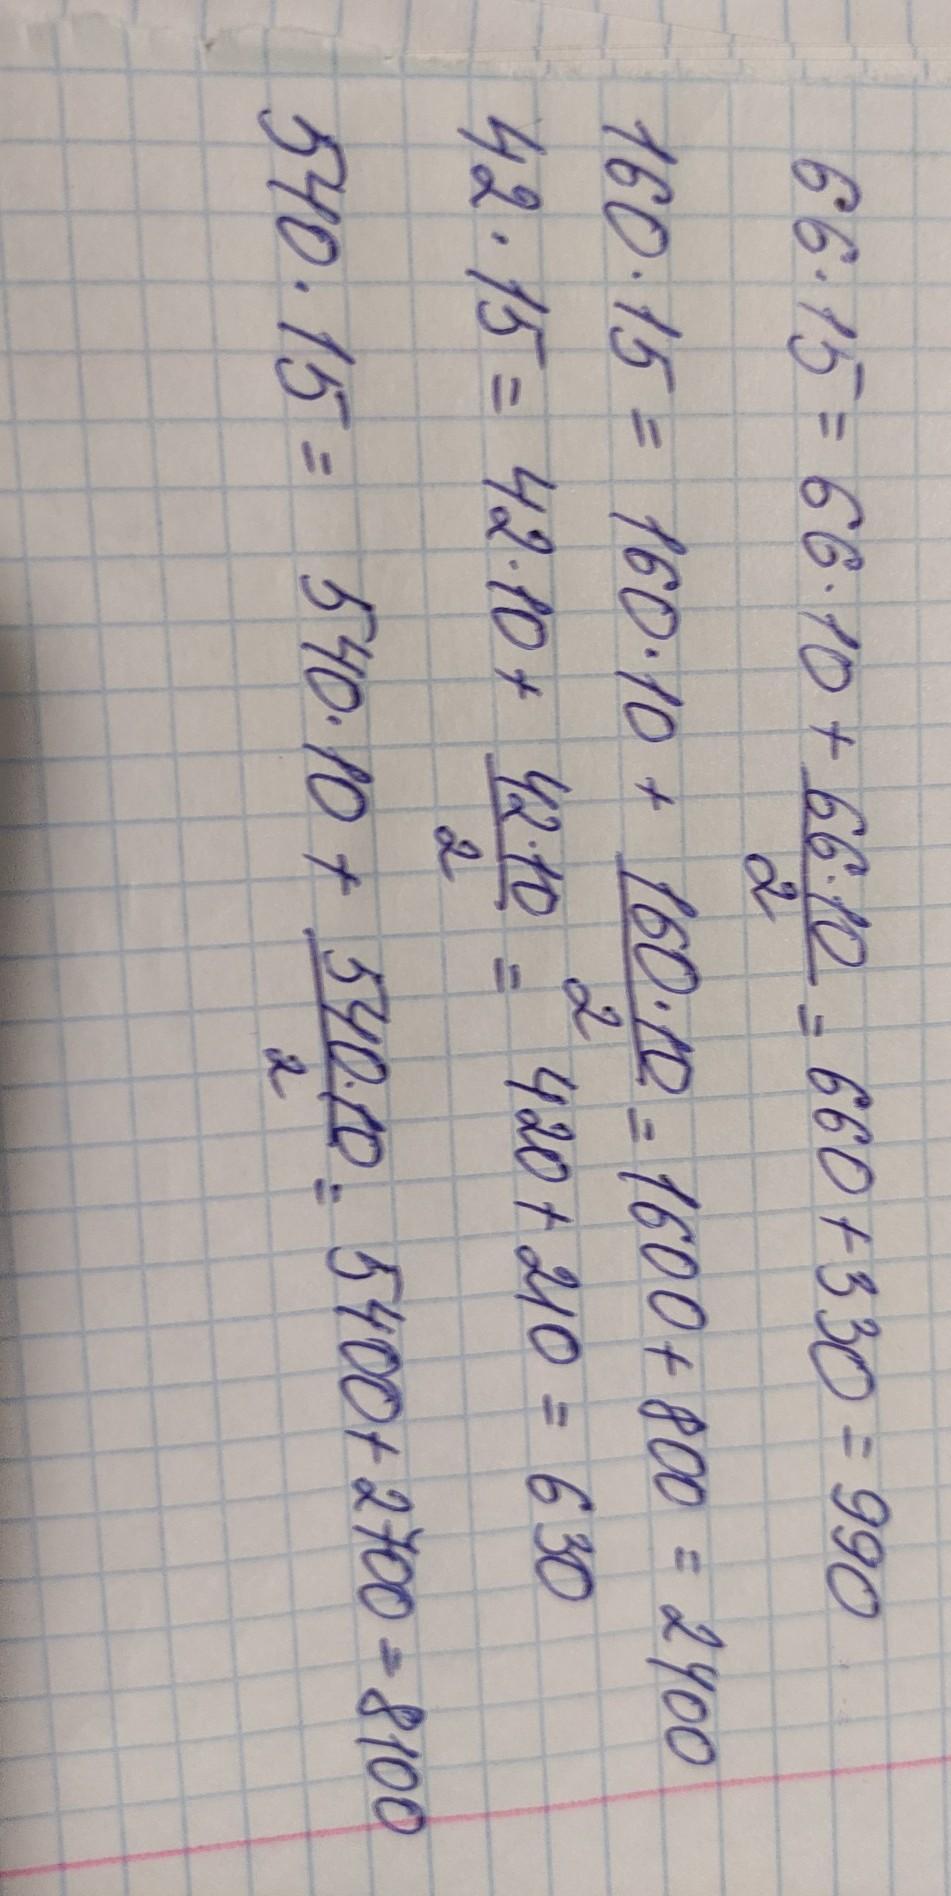 66·15 = 66·10 + 66·10/2 = 660 + 330 = 990
160·15 = 160·10 + 160·10/2 = 1600 + 800 = 2400
42·15 = 42·10 + 42·10/2 = 420 + 210 = 630
540·15 = 540·10 + 540·10/2 = 5400 + 2700 = 8100